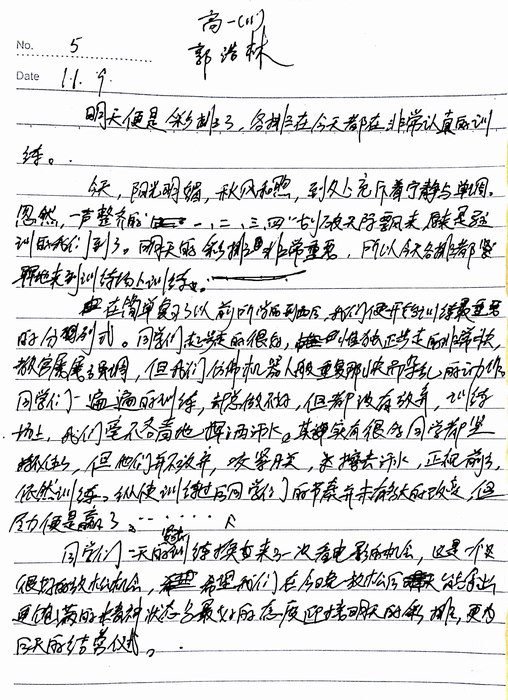 高一(11)
No. 5
郭浩林
Date 11. 9.
明天便是彩排了,各排在今天都在非常认真的训
练。
今天,阳光明媚,秋风和煦,到处充斥着宁静与单调。
忽然,一声整齐的"一、二、三、四"划破天际飘来,原来是
训的我们到了。明天的彩排非常重要,所以今天各排都
来到训练场上训练。
在简单复习了以前所学的到后,我们便开始训练最重要
的分列式。同学们走的很好,惟独正步走的非常
教官屡屡强调,但我们仿佛机器人般重复那杂乱的动作。
同学们一遍遍的训练,却总做不好,但都没有放弃,训练
场上,我们毫不吝啬地挥洒汗水。其实有很多同学都坚
持不住,但他们并不放弃,咬紧牙关,擦去汗水,正视前方,
依然训练。纵使训练过后同学们的节奏并未有太大的改变,但
尽力便是赢了。……
同学们一天的训练换来了一次看电影的机会,这是一个
很好的放松机会,希望我们在今晚放松后能拿出
更饱满的精神状态与最好的态度迎接明天的彩排,更为
后天的结营仪式。